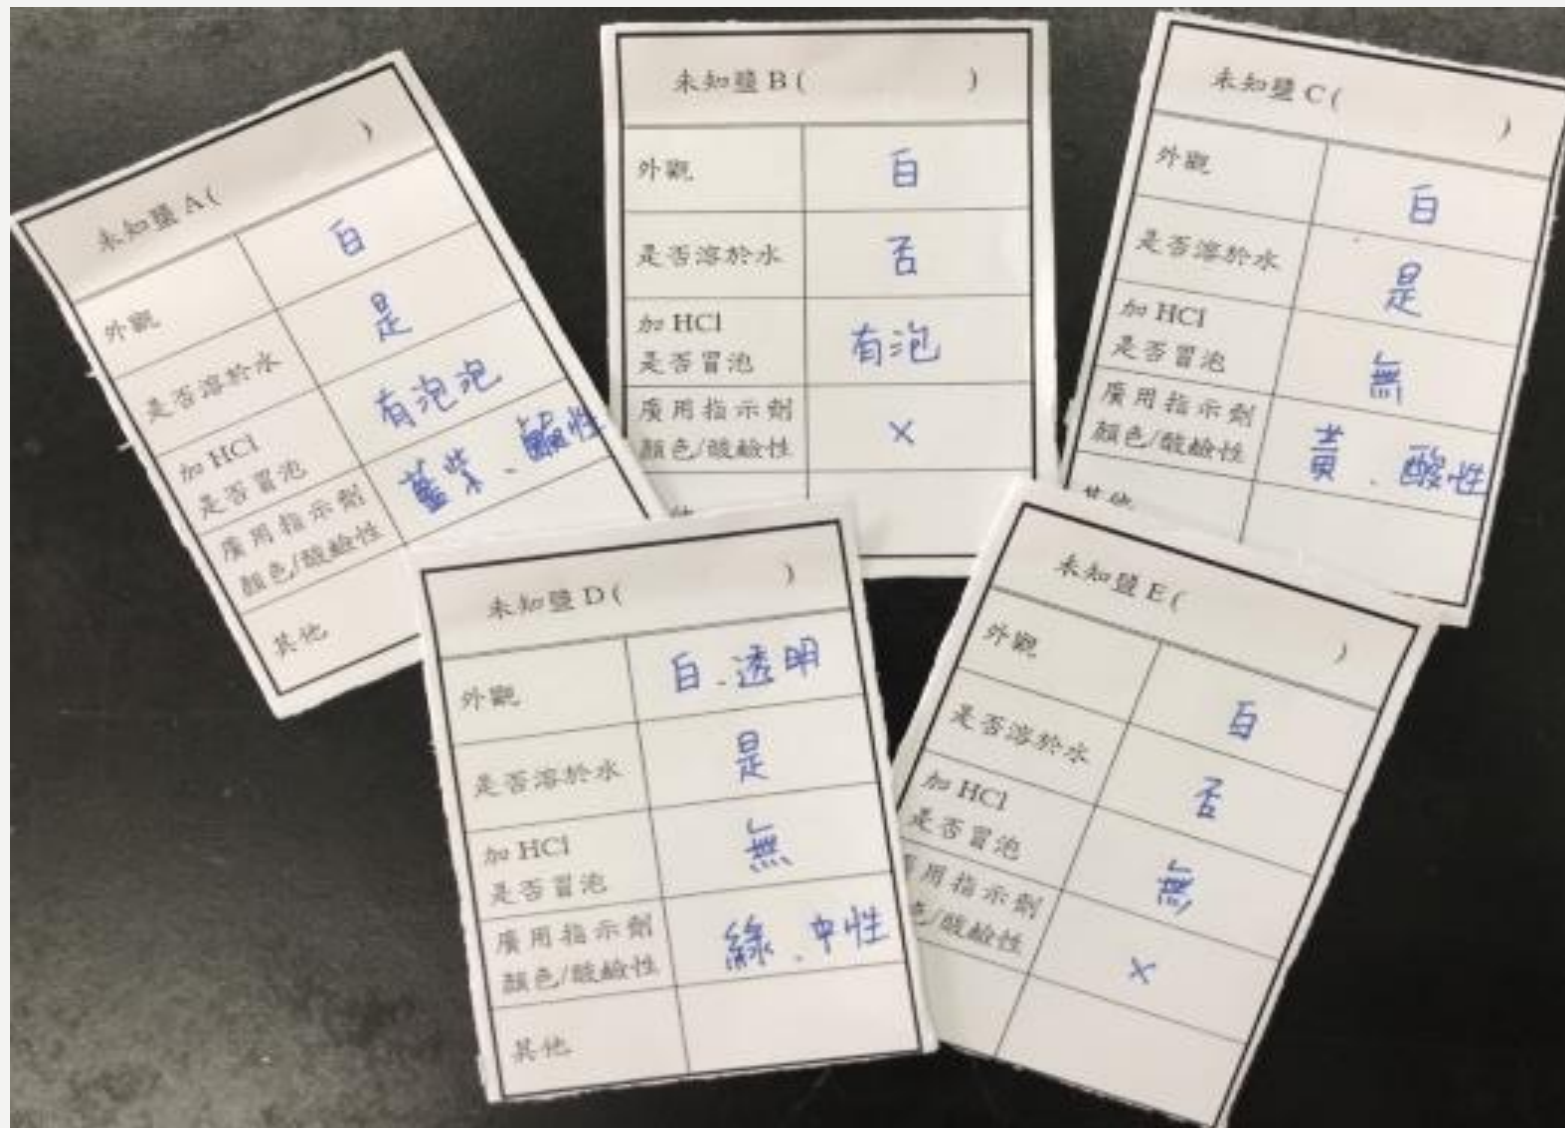 未知鹽 A (               )
外觀 白
是否溶於水 是
加 HCl
是否冒泡 有泡泡
廣用指示劑
顏色/酸鹼性 藍紫、鹼性
其他
未知鹽 B (               )
外觀 白
是否溶於水 否
加 HCl
是否冒泡 有泡
廣用指示劑
顏色/酸鹼性 ×
未知鹽 C (               )
外觀 白
是否溶於水 是
加 HCl
是否冒泡 無
廣用指示劑
顏色/酸鹼性 黃、酸性
其他
未知鹽 D (               )
外觀 白、透明
是否溶於水 是
加 HCl
是否冒泡 無
廣用指示劑
顏色/酸鹼性 綠、中性
其他
未知鹽 E (               )
外觀 白
是否溶於水 否
加 HCl
是否冒泡 無
用指示劑
色/酸鹼性 ×